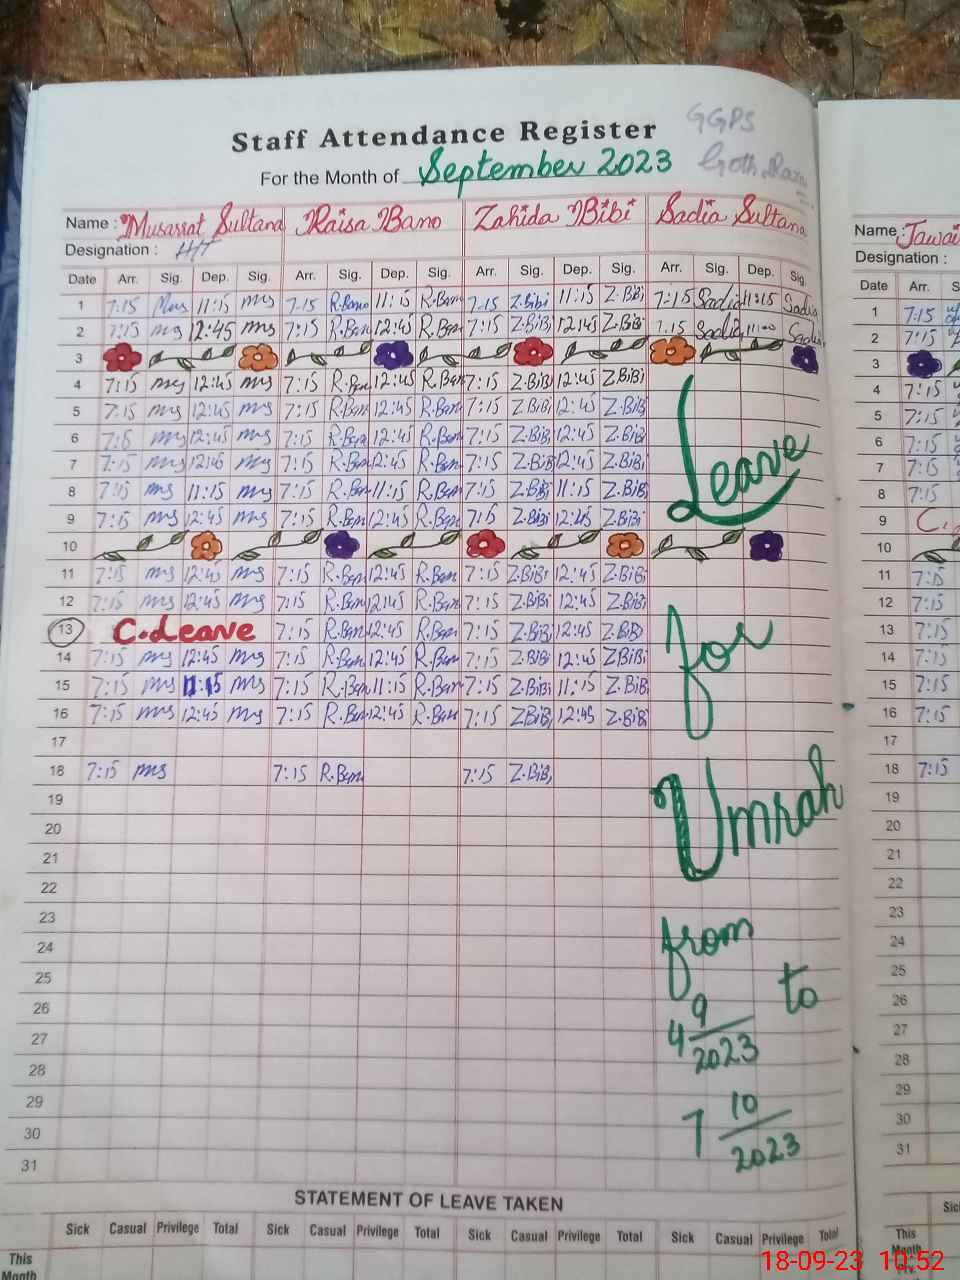 GGPS
Staff Attendance Register
Goth
For the Month of September 2023
Name : Musarrat Sultana Raisa Bano Zahida Bibi Sadia Sultana
Designation : HT
Date Arr. Sig. Dep. Sig. Arr. Sig. Dep. Sig. Arr. Sig. Dep. Sig. Arr. Sig. Dep. Sig.
1 7:15 Mus 11:15 ms 7:15 R.Bano 11:15 R.Bano 7:15 Z.Bibi 11:15 Z.BiBi 7:15 Sadia 11:15 Sadia
2 7:15 ms 12:45 ms 7:15 R.Bano 12:45 R.Bano 7:15 Z.BiBi 12:45 Z.BiBi 7:15 Sadia Sadia
3
4 7:15 ms 12:45 ms 7:15 R.Ban 12:45 R.Ban 7:15 Z.BiBi 12:45 Z.BiBi
5 7:15 ms 12:45 ms 7:15 R.Ban 12:45 R.Ban 7:15 Z.BiBi 12:45 Z.BiBi
6 7:15 ms 12:45 ms 7:15 R.Ban 12:45 R.Ban 7:15 Z.BiBi 12:45 Z.BiBi
7 7:15 ms 12:45 ms 7:15 R.Ban 12:45 R.Ban 7:15 Z.BiBi 12:45 Z.BiBi
Leave
8 7:15 ms 11:15 ms 7:15 R.Ban 11:15 R.Ban 7:15 Z.BiBi 11:15 Z.BiBi
9 7:15 ms 12:45 ms 7:15 R.Ban 12:45 R.Ban 7:15 Z.BiBi 12:45 Z.BiBi
10
11 7:15 ms 12:45 ms 7:15 R.Ban 12:45 R.Ban 7:15 Z.BiBi 12:45 Z.BiBi
12 7:15 ms 12:45 ms 7:15 R.Ban 12:45 R.Ban 7:15 Z.BiBi 12:45 Z.BiBi
13 C.Leave 7:15 R.Ban 12:45 R.Ban 7:15 Z.BiBi 12:45 Z.BiBi
for
14 7:15 ms 12:45 ms 7:15 R.Ban 12:45 R.Ban 7:15 Z.BiBi 12:45 Z.BiBi
15 7:15 ms 11:15 ms 7:15 R.Ban 11:15 R.Ban 7:15 Z.BiBi 11:15 Z.BiBi
16 7:15 ms 12:45 ms 7:15 R.Ban 12:45 R.Ban 7:15 Z.BiBi 12:45 Z.BiBi
17
18 7:15 ms 7:15 R.Ban 7:15 Z.BiBi
19
Umrah
20
21
22
23
24
from
25
26
to
27
4 9/2023
28
29
30
7 10/2023
31
STATEMENT OF LEAVE TAKEN
Sick Casual Privilege Total Sick Casual Privilege Total Sick Casual Privilege Total Sick Casual Privilege Total
This
Month
Name :
Designation :
Date Arr.
1 7:15
2 7:15
3
4 7:15
5 7:15
6 7:15
7 7:15
8 7:15
9 C.
10
11 7:15
12 7:15
13 7:15
14 7:15
15 7:15
16 7:15
17
18 7:15
19
20
21
22
23
24
25
26
27
28
29
30
31
This
Month
18-09-23 10:52